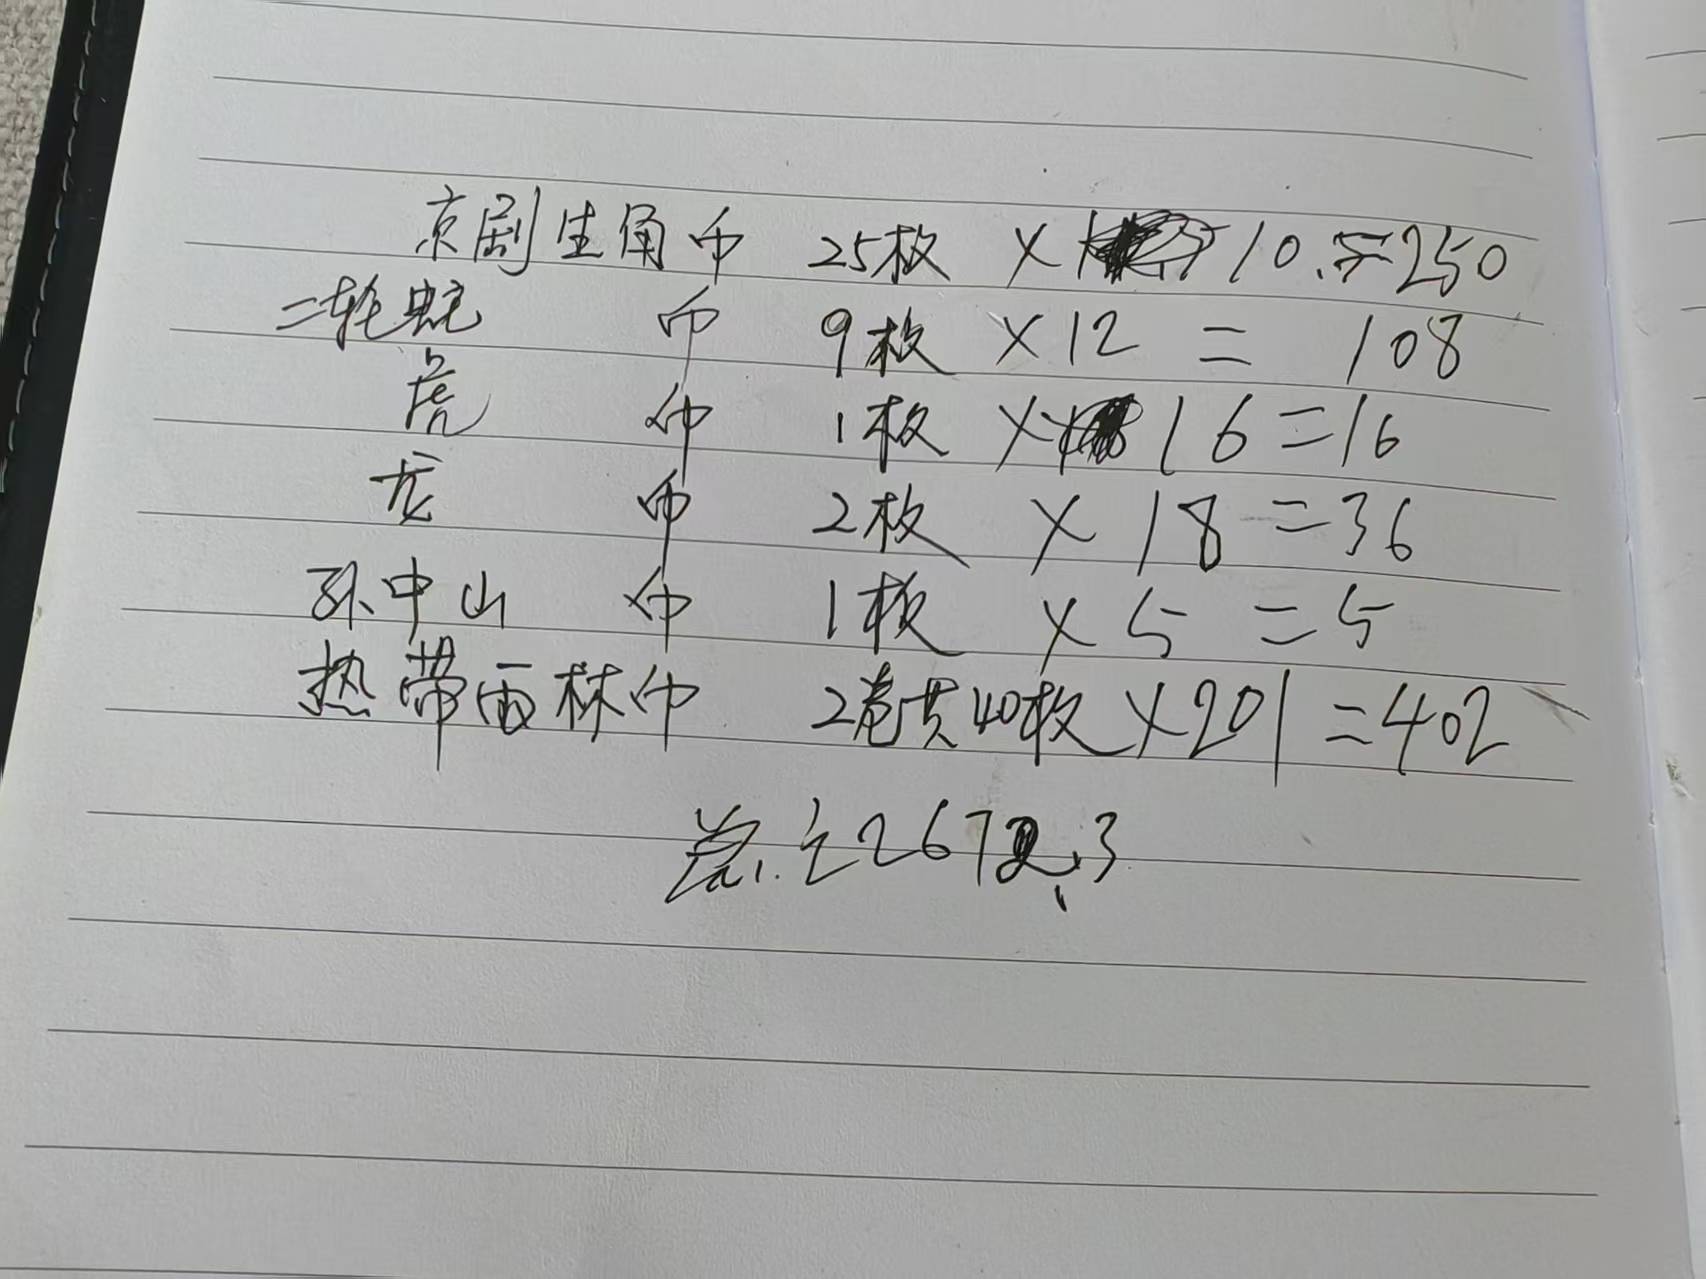 京剧生角币 25枚 × 10.=250
二轮蛇 币 9枚 ×12 = 108
虎 币 1枚 × 16=16
龙 币 2枚 × 18=36
孙中山 币 1枚 × 5 =5
热带雨林币 2卷共40枚×201=402
2672.3